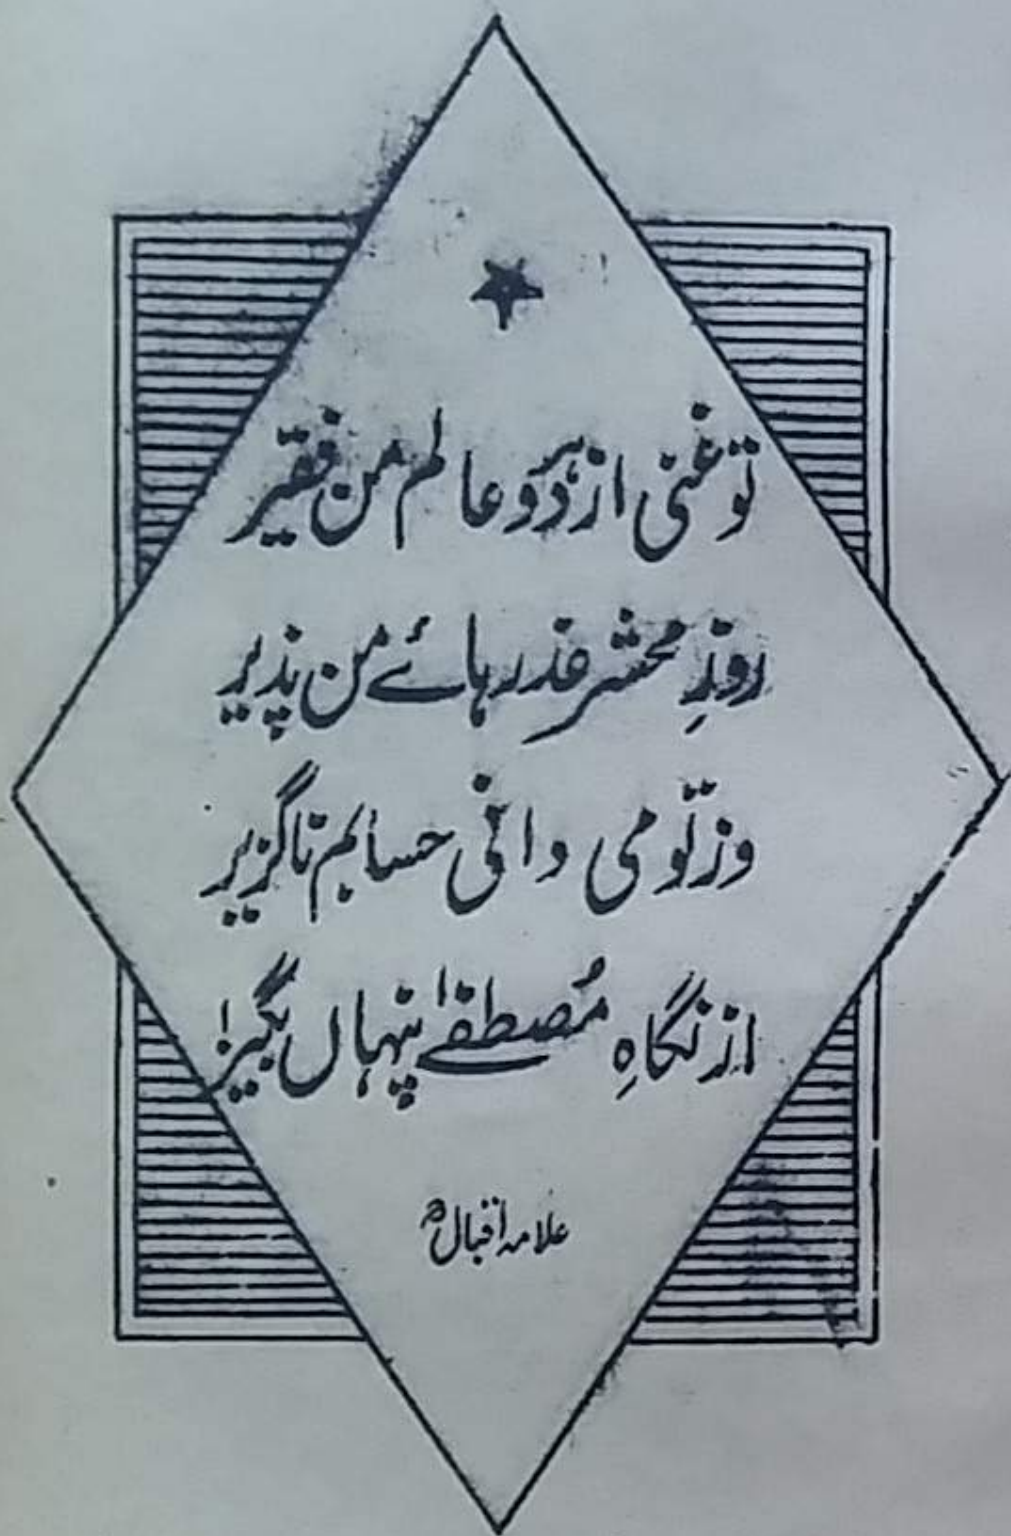 تو غنی از ہر دو عالم من فقیر
روزِ محشر عذر ہائے من پذیر
وز تو می دانی حسابم ناگزیر
از نگاہِ مُصطفےٰ پنہاں بگیر!
علامہ اقبالؒ